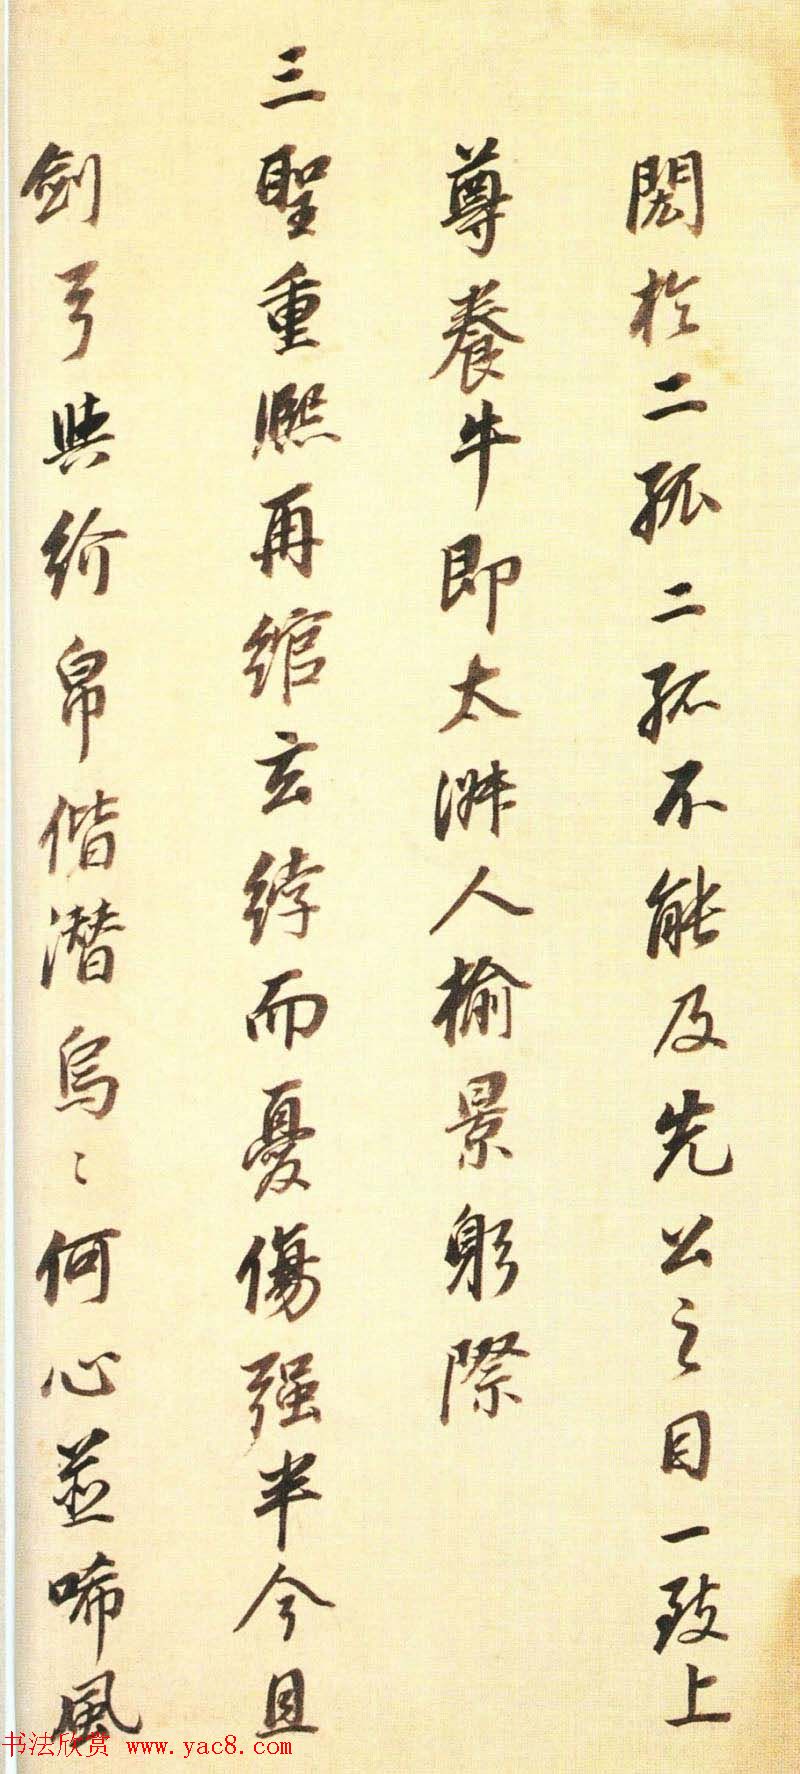 閎於二孤二孤不能及先公之目一致上
尊養牛即太淋人榆景躬際
三聖重熙再綰玄綍而憂傷强半今且
劍弓與紟帛偕潛烏〻何心並唏風
书法欣赏 www.yac8.com